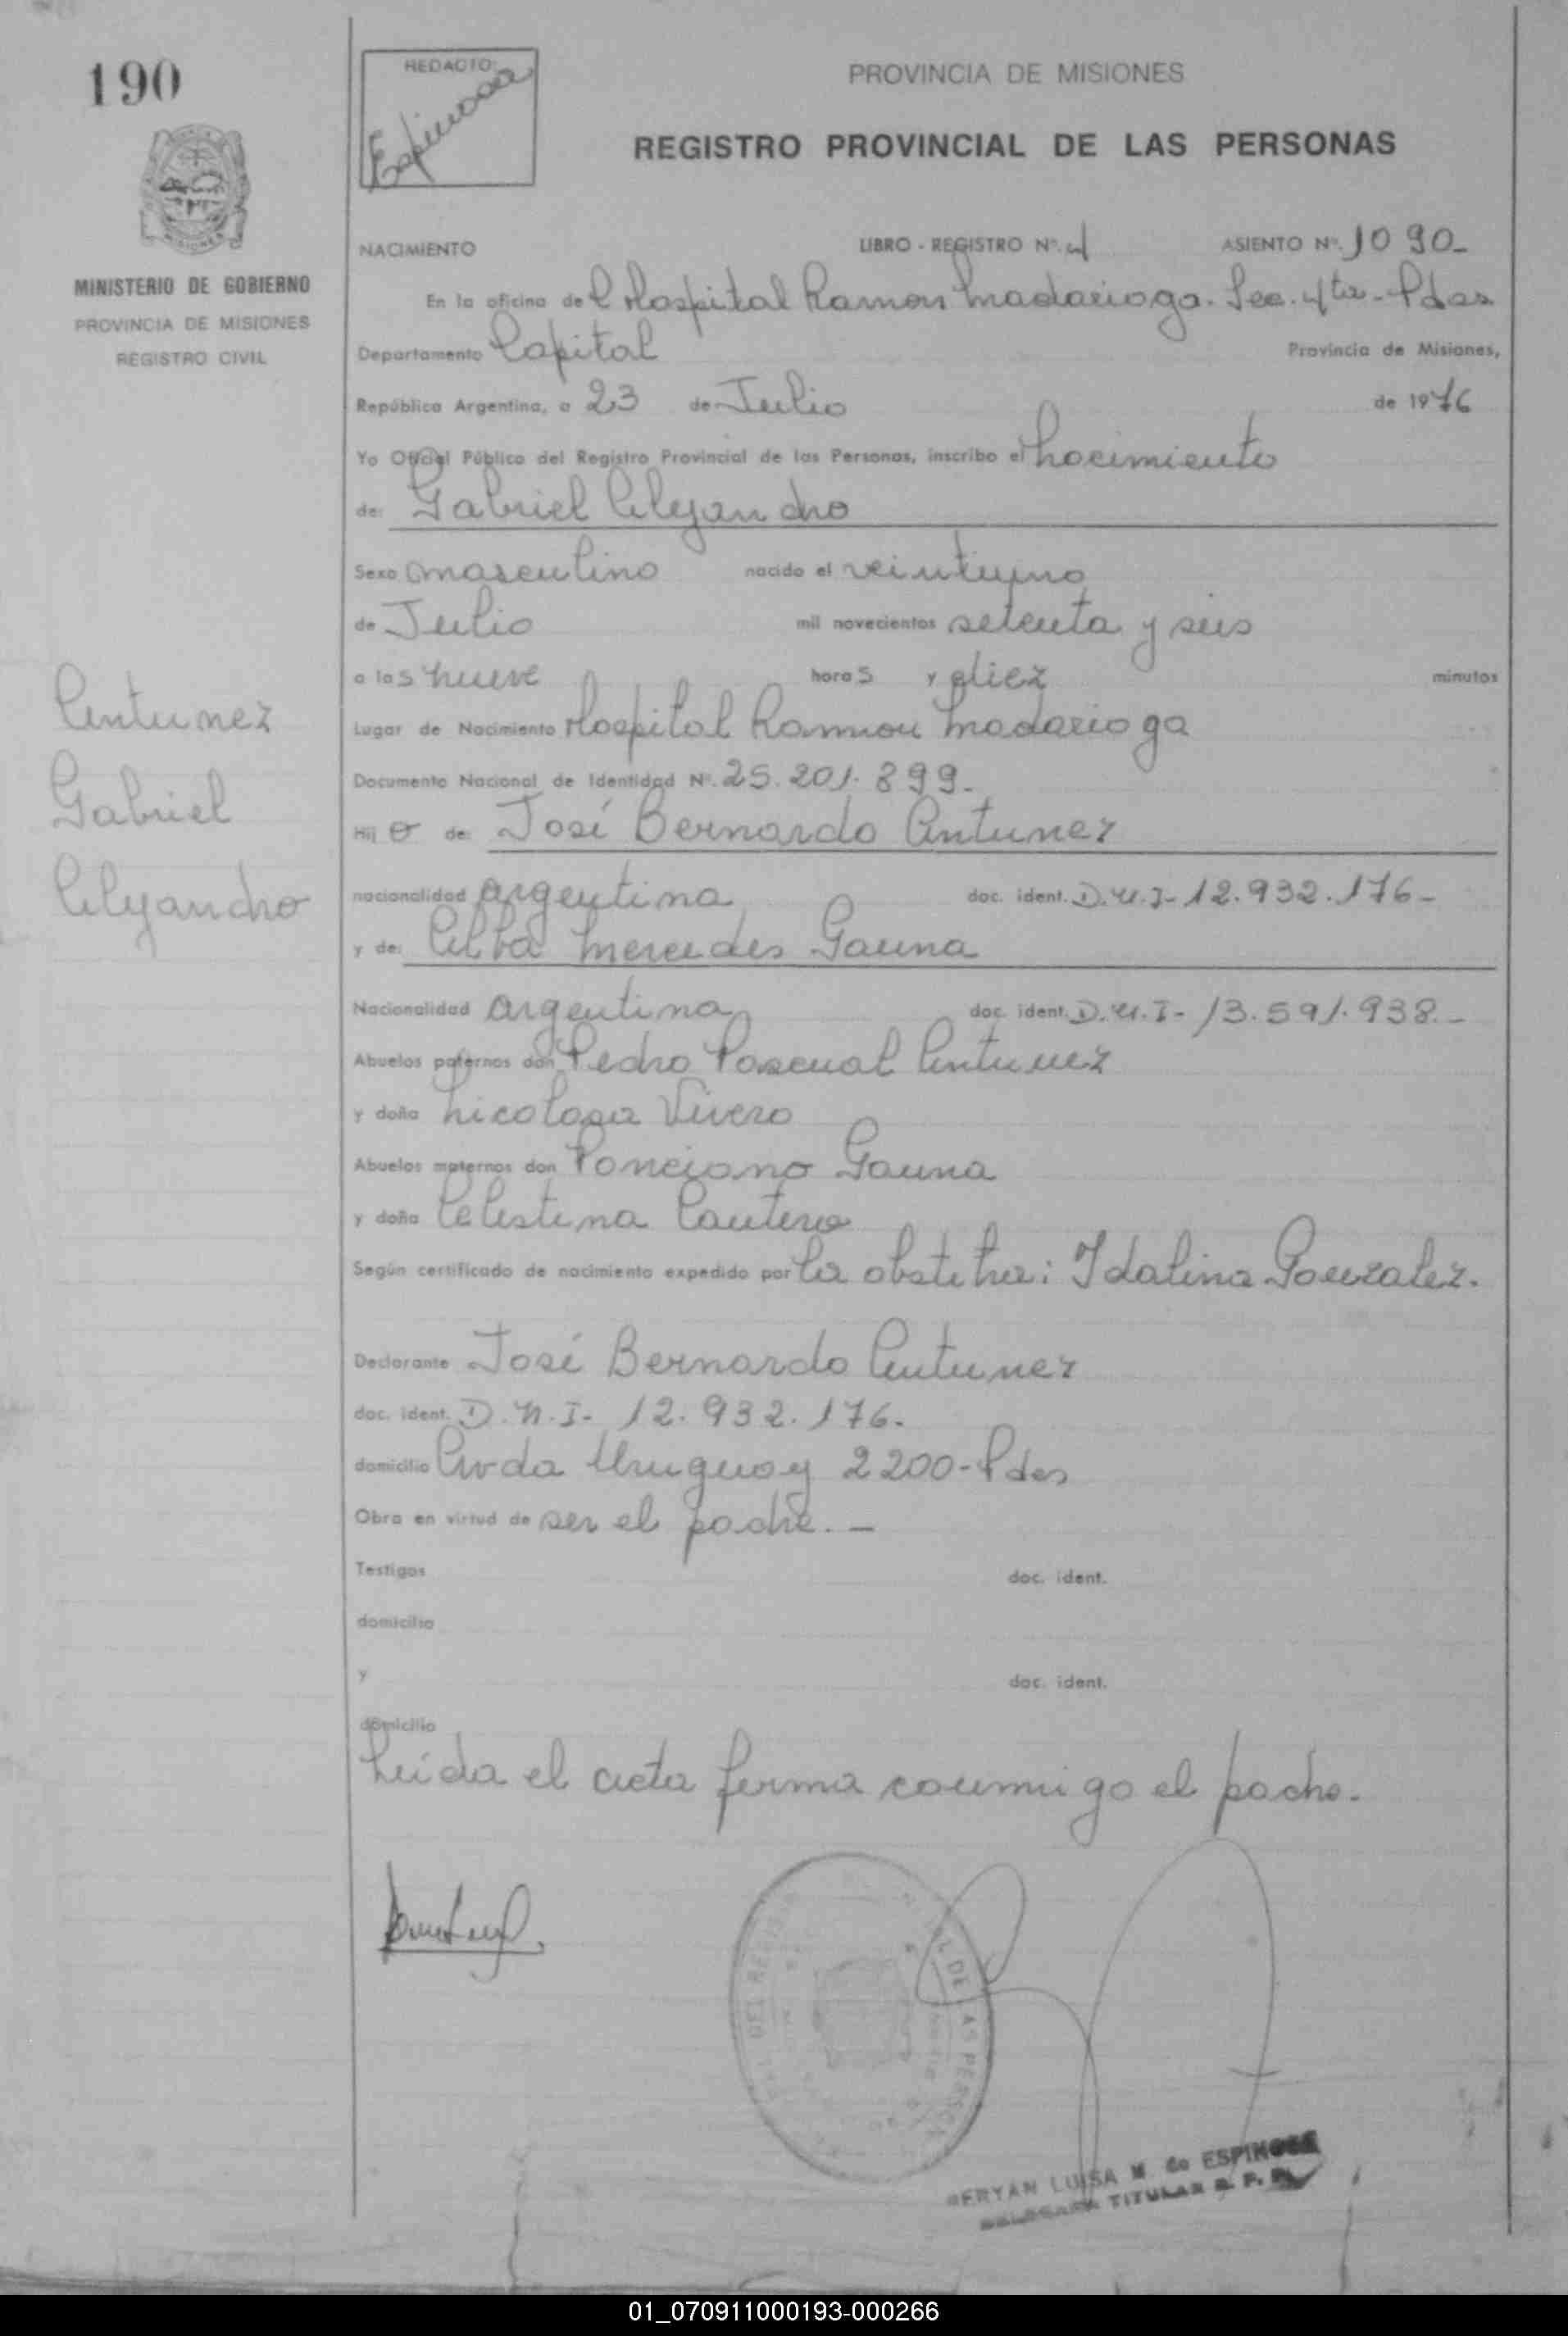 190
REDACTO:
Espinosa
PROVINCIA DE MISIONES
REGISTRO PROVINCIAL DE LAS PERSONAS
MINISTERIO DE GOBIERNO
PROVINCIA DE MISIONES
REGISTRO CIVIL
NACIMIENTO LIBRO - REGISTRO Nº. 4 ASIENTO Nº. 1090-
En la oficina del Hospital Ramon Madariaga. Sec. 4ta - Pdas
Departamento Capital Provincia de Misiones,
República Argentina, a 23 de Julio de 1976
Yo Oficial Público del Registro Provincial de las Personas, inscribo el Nacimiento
de: Gabriel Alejandro
Sexo masculino nacido el veintiuno
de Julio mil novecientos setenta y seis
a las nueve horas y diez minutos
Lugar de Nacimiento Hospital Ramon Madariaga
Documento Nacional de Identidad Nº. 25.201.899-
Hijo de: José Bernardo Antunez
nacionalidad argentina doc. ident. D.N.I- 12.932.176-
y de: Alba Mercedes Gauna
Nacionalidad argentina doc. ident. D.N.I- 13.591.938.-
Abuelos paternos don Pedro Pascual Antunez
y doña Nicolasa Vivero
Abuelos maternos don Ponciano Gauna
y doña Celestina Cantero
Según certificado de nacimiento expedido por la obstetra: Idalina Gonzalez.
Declarante José Bernardo Antunez
doc. ident. D.N.I- 12.932.176.
domicilio Avda Uruguay 2200-Pdas
Obra en virtud de ser el padre.-
Testigos doc. ident.
domicilio
y doc. ident.
domicilio
Leída el acta firma conmigo el padre.
Antunez
Gabriel
Alejandro
DEL REGISTRO DE LAS PERSONAS
LUISA M. de ESPINOSA
TITULAR R. P. P.
01_070911000193-000266